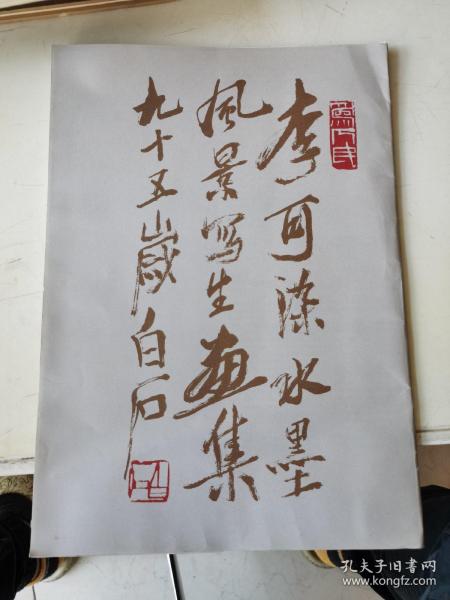 李可染水墨
风景写生画集
九十五岁白石
为人民
孔夫子旧书网
www.kongfz.com